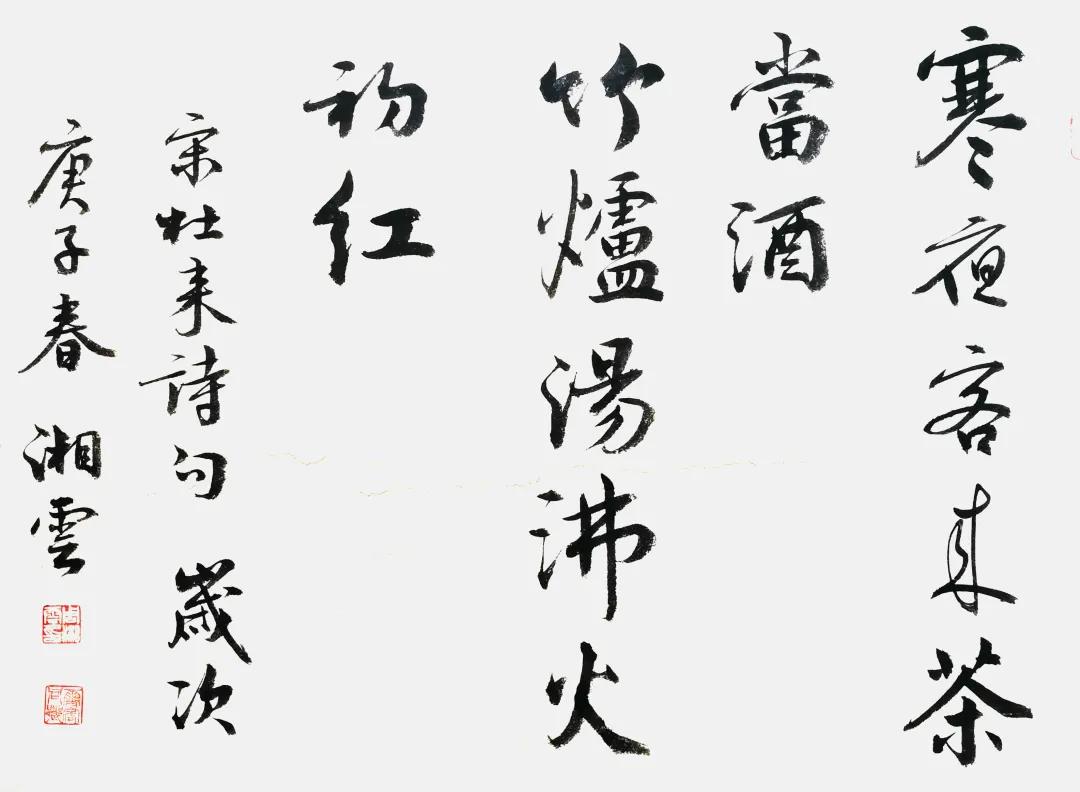 寒夜客来茶
當酒
竹爐湯沸火
初红
宋杜来詩句 歲次
庚子春 湘雲